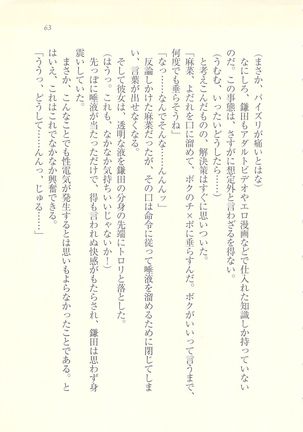 63
(まさか、パイズリが痛いとはな)
なにしろ、鎌田もアダルトビデオやエロ漫画などで仕入れた知識しか持っていない
のだ。この事態は、さすがに想定外と言わざるを得ない。
(うむむ、いったいどうしたら……)
と考えこんだものの、解決策はすぐに思いついた。
「麻菜、よだれを口に溜めて、ボクのチ×ポに垂らすんだ。ボクがいいって言うまで、
何度でも垂らそうね」
「なっ……なんでそんな……んんんッ」
反論しかけた麻菜だったが、その口は命令に従って唾液を溜めるために閉じてしま
い、言葉が出せなくなる。
そして彼女は、透明な液を鎌田の分身の先端にトロリと落とした。
(はうっ。これも、なかなか気持ちいいじゃないか!)
先っぽに唾液が当たっただけで、得も言われぬ快感がもたらされ、鎌田は思わず身
震いしていた。
まさか、こんなことでも性電気が発生するとは思いもよらなかったことである。と
はいえ、これはこれでなかなか興奮できる。
「ううっ、どうして……んんっ、じゅる……」